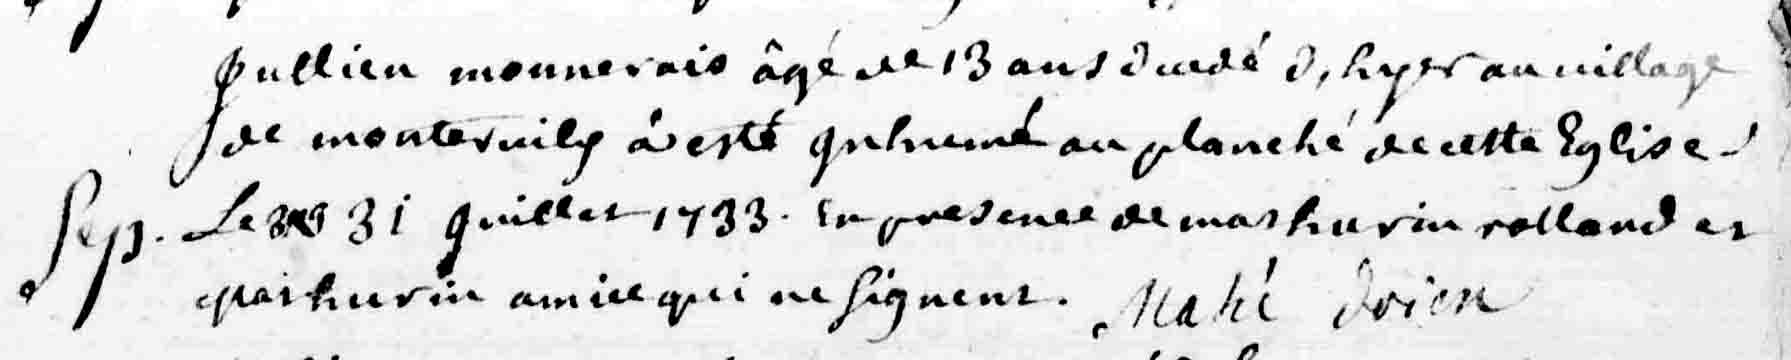 Jullien monnerais âgé de 13 ans decedé d'hyer au village
de montervily à esté Inhumé au planché de cette Eglise
Sep. Le 31 Juillet 1733. En presence de mathurin rolland et
mathurin amice qui ne signent. Mahé doien